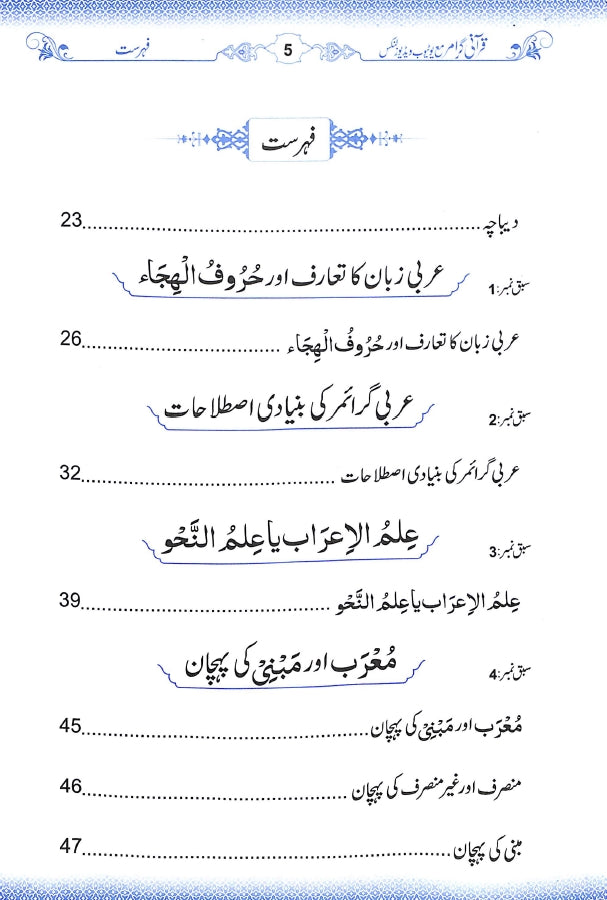 قرآنی گرامر مع یوٹیوب ویڈیو لنکس 5 فہرست
فہرست
دیباچہ 23
سبق نمبر:1 عربی زبان کا تعارف اور حُرُوفُ الْهِجَاء
عربی زبان کا تعارف اور حُرُوفُ الْهِجَاء 26
سبق نمبر:2 عربی گرائمر کی بنیادی اصطلاحات
عربی گرائمر کی بنیادی اصطلاحات 32
سبق نمبر:3 عِلمُ الاِعرَاب یا عِلمُ النَّحْو
عِلمُ الاِعرَاب یا عِلمُ النَّحْو 39
سبق نمبر:4 مُعْرَب اور مَبْنِیْ کی پہچان
مُعْرَب اور مَبْنِیْ کی پہچان 45
منصرف اور غیر منصرف کی پہچان 46
مبنی کی پہچان 47